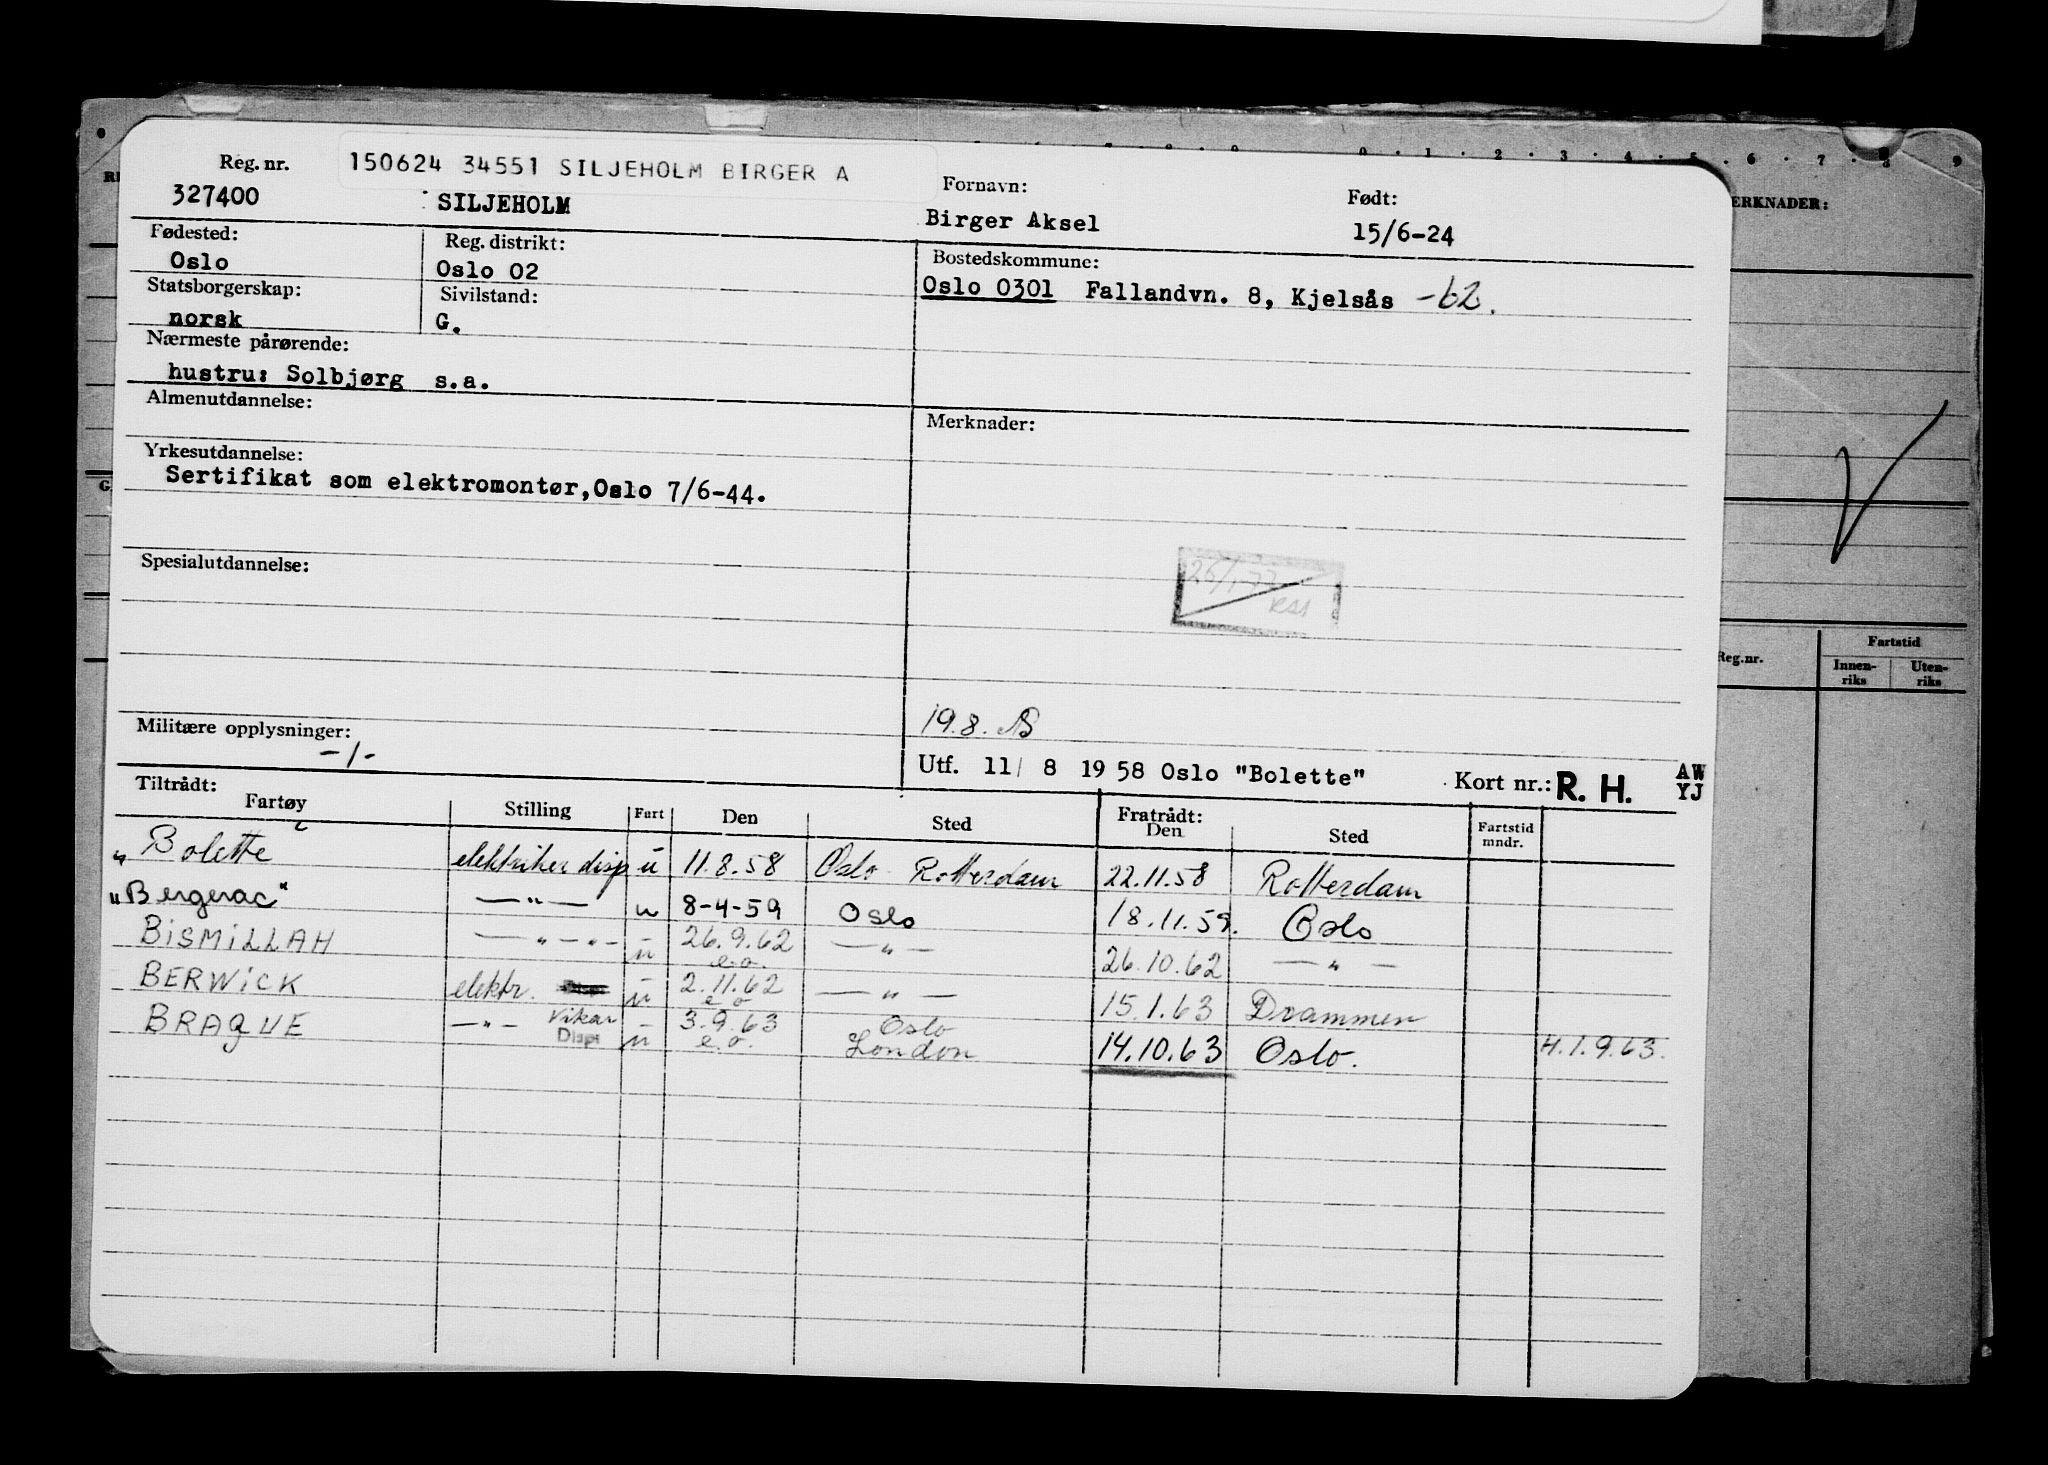 Reg. nr. 150624 34551 SILJEHOLM BIRGER A Fornavn: Født:
327400 SILJEHOLM Birger Aksel 15/6-24
Fødested: Reg. distrikt: Bostedskommune:
Oslo Oslo 02 Oslo 0301 Fallandvn. 8, Kjelsås -62.
Statsborgerskap: Sivilstand:
norsk G.
Nærmeste pårørende:
hustru: Solbjørg s.a.
Almenutdannelse: Merknader:
Yrkesutdannelse:
Sertifikat som elektromontør, Oslo 7/6-44.
Spesialutdannelse:
Militære opplysninger: 19.8.
-/-
Utf. 11/ 8 19 58 Oslo "Bolette" Kort nr.: R. H. AW
YJ
Tiltrådt: Fratrådt:
Fartøy Stilling Fart Den Sted Den Sted Fartstid
mndr.
" Bolette elektriker disp u 11.8.58 Oslo Rotterdam 22.11.58 Rotterdam
"Bergerac" —"— u 8-4-59 Oslo 18.11.59. Oslo
BISMILLAH —"—"- u 26.9.62 —"— 26.10.62 —"—
e.o.
BERWICK elektr. u 2.11.62 —"— 15.1.63 Drammen
e o
BRAQUE —"— Vikar u 3.9.63 Oslo
Disp e.o. London 14.10.63 Oslo. H.1.9.63.
ERKNADER:
Reg.nr. Fartstid
Innen-
riks Uten-
riks